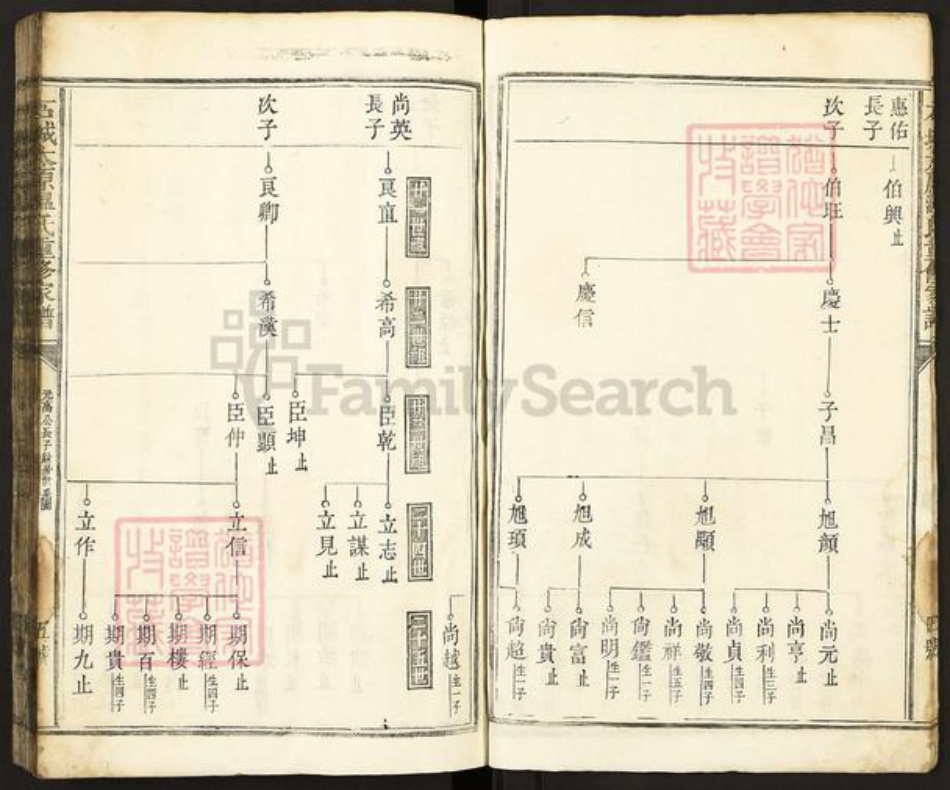 惠佑
長子
伯興止
次子
伯旺
慶士
慶信
子昌
旭顏
旭顯
旭成
旭頊
尚元止
尚亨止
尚利生三子
尚貞生四子
尚敬生四子
尚祥生五子
尚鑑生一子
尚明生一子
尚富止
尚貴止
尚超生一子
尚越生一子
二十四世
二十五世
尚英
長子
良直
希高
臣乾
臣坤止
立志止
立謀止
立見止
次子
良卿
希漢
臣顯止
臣仲
立信
立作
期保止
期經生四子
期樓止
期百生四子
期貴生四子
期九止
石城太原溫氏重修家譜
FamilySearch